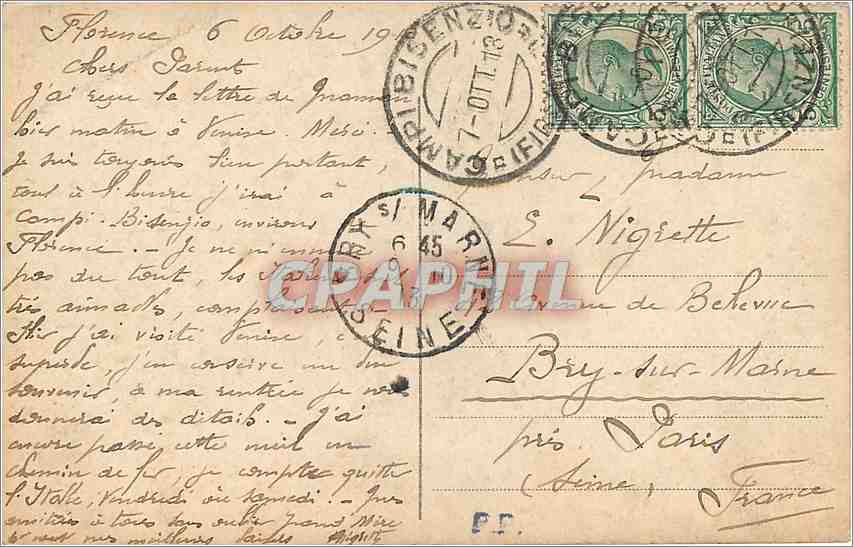 Florence 6 Octobre 19
chers Parent
J'ai reçu la lettre de Maman
hier matin à Venise. Merci.
Je suis toujours bien portant,
tout à l'heure j'irai à
Campi-Bisenzio, environs
Florence. - Je ne m'ennuie
pas du tout, les Italiens
très aimables, complaisants
Hier j'ai visité Venise, c
superbe, j'en conserve un bon
souvenir, à ma rentrée je vous
donnerai des détails. - J'ai
encore passé cette nuit en
chemin de fer, je compte quitter
l'Italie, Vendredi ou Samedi. - Mes
amitiés à tous sans oublier Grand Mère
et vous mes meilleurs baisers
CAMPI BISENZIO
7-OTT.13
(FIRENZE)
BRY s/ MARNE
6 45
SEINE
CPARPHIL
Madame
E. Nigrette
Avenue de Bellevue
Bry-sur-Marne
près Paris
(Seine)
France
P.P.